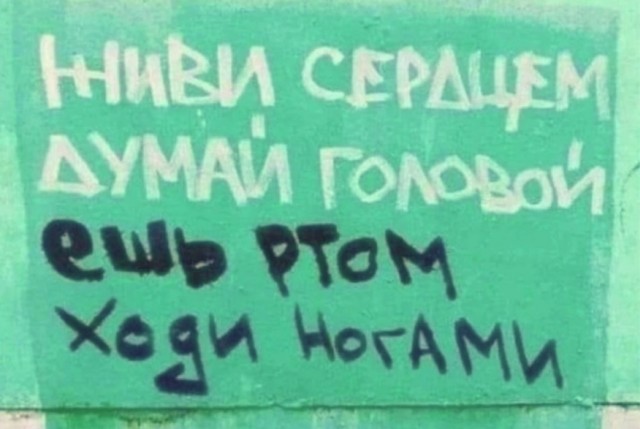 ЖИВИ СЕРДЦЕМ
ДУМАЙ ГОЛОВОЙ
ешь ртом
ходи ногами